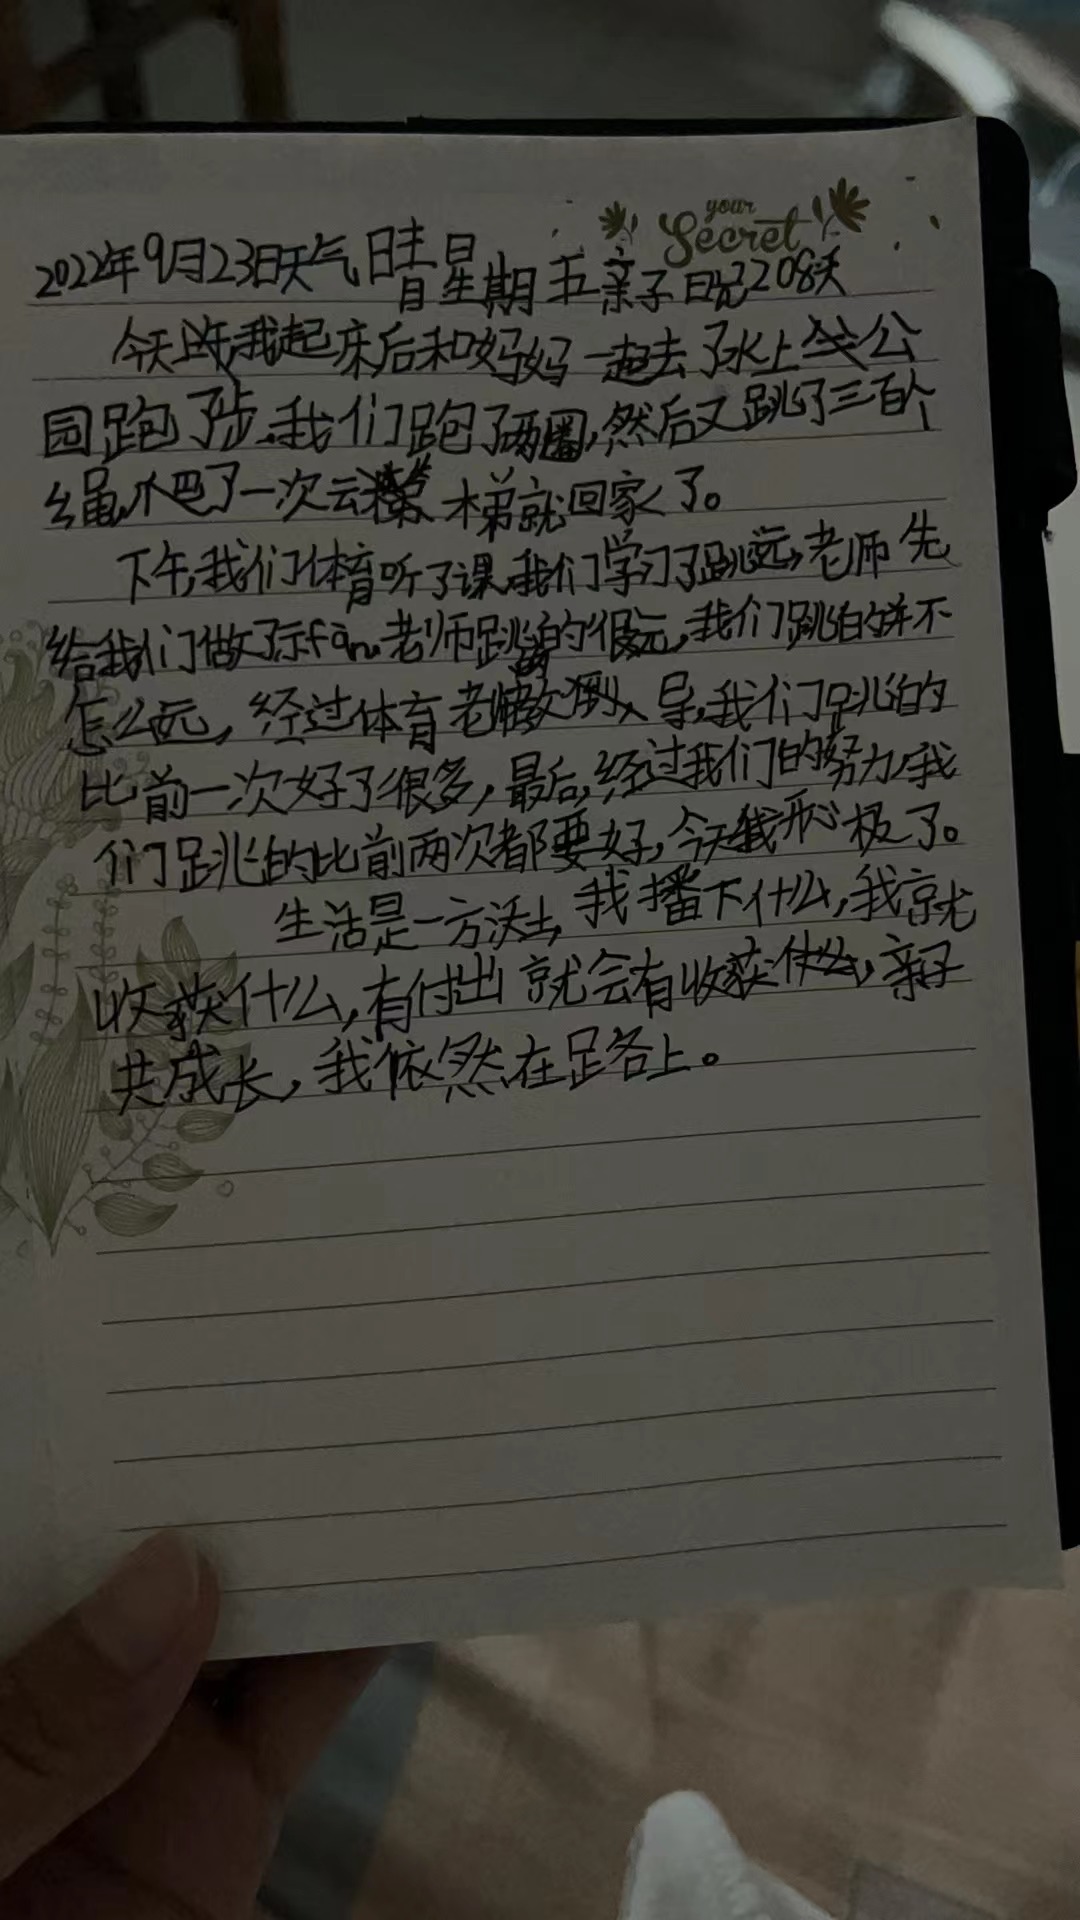 your
Secret
2022年9月23日天气晴星期五亲子日记208天
今天上午,我起床后和妈妈一起去了水上公
园跑了步,我们跑了两圈,然后又跳了三百个
绳,爬了一次云梯就回家了。
下午,我们体育听了课,我们学习了跳远,老师先
给我们做了示fàn,老师跳的很远,我们跳的并不
怎么远,经过体育老师教导,我们跳的
比前一次好了很多,最后,经过我们的努力,我
们跳的比前两次都要好,今天我开心极了。
生活是一方沃土,我播下什么,我就
收获什么,有付出就会有收获什么,亲子
共成长,我依然在足各上。